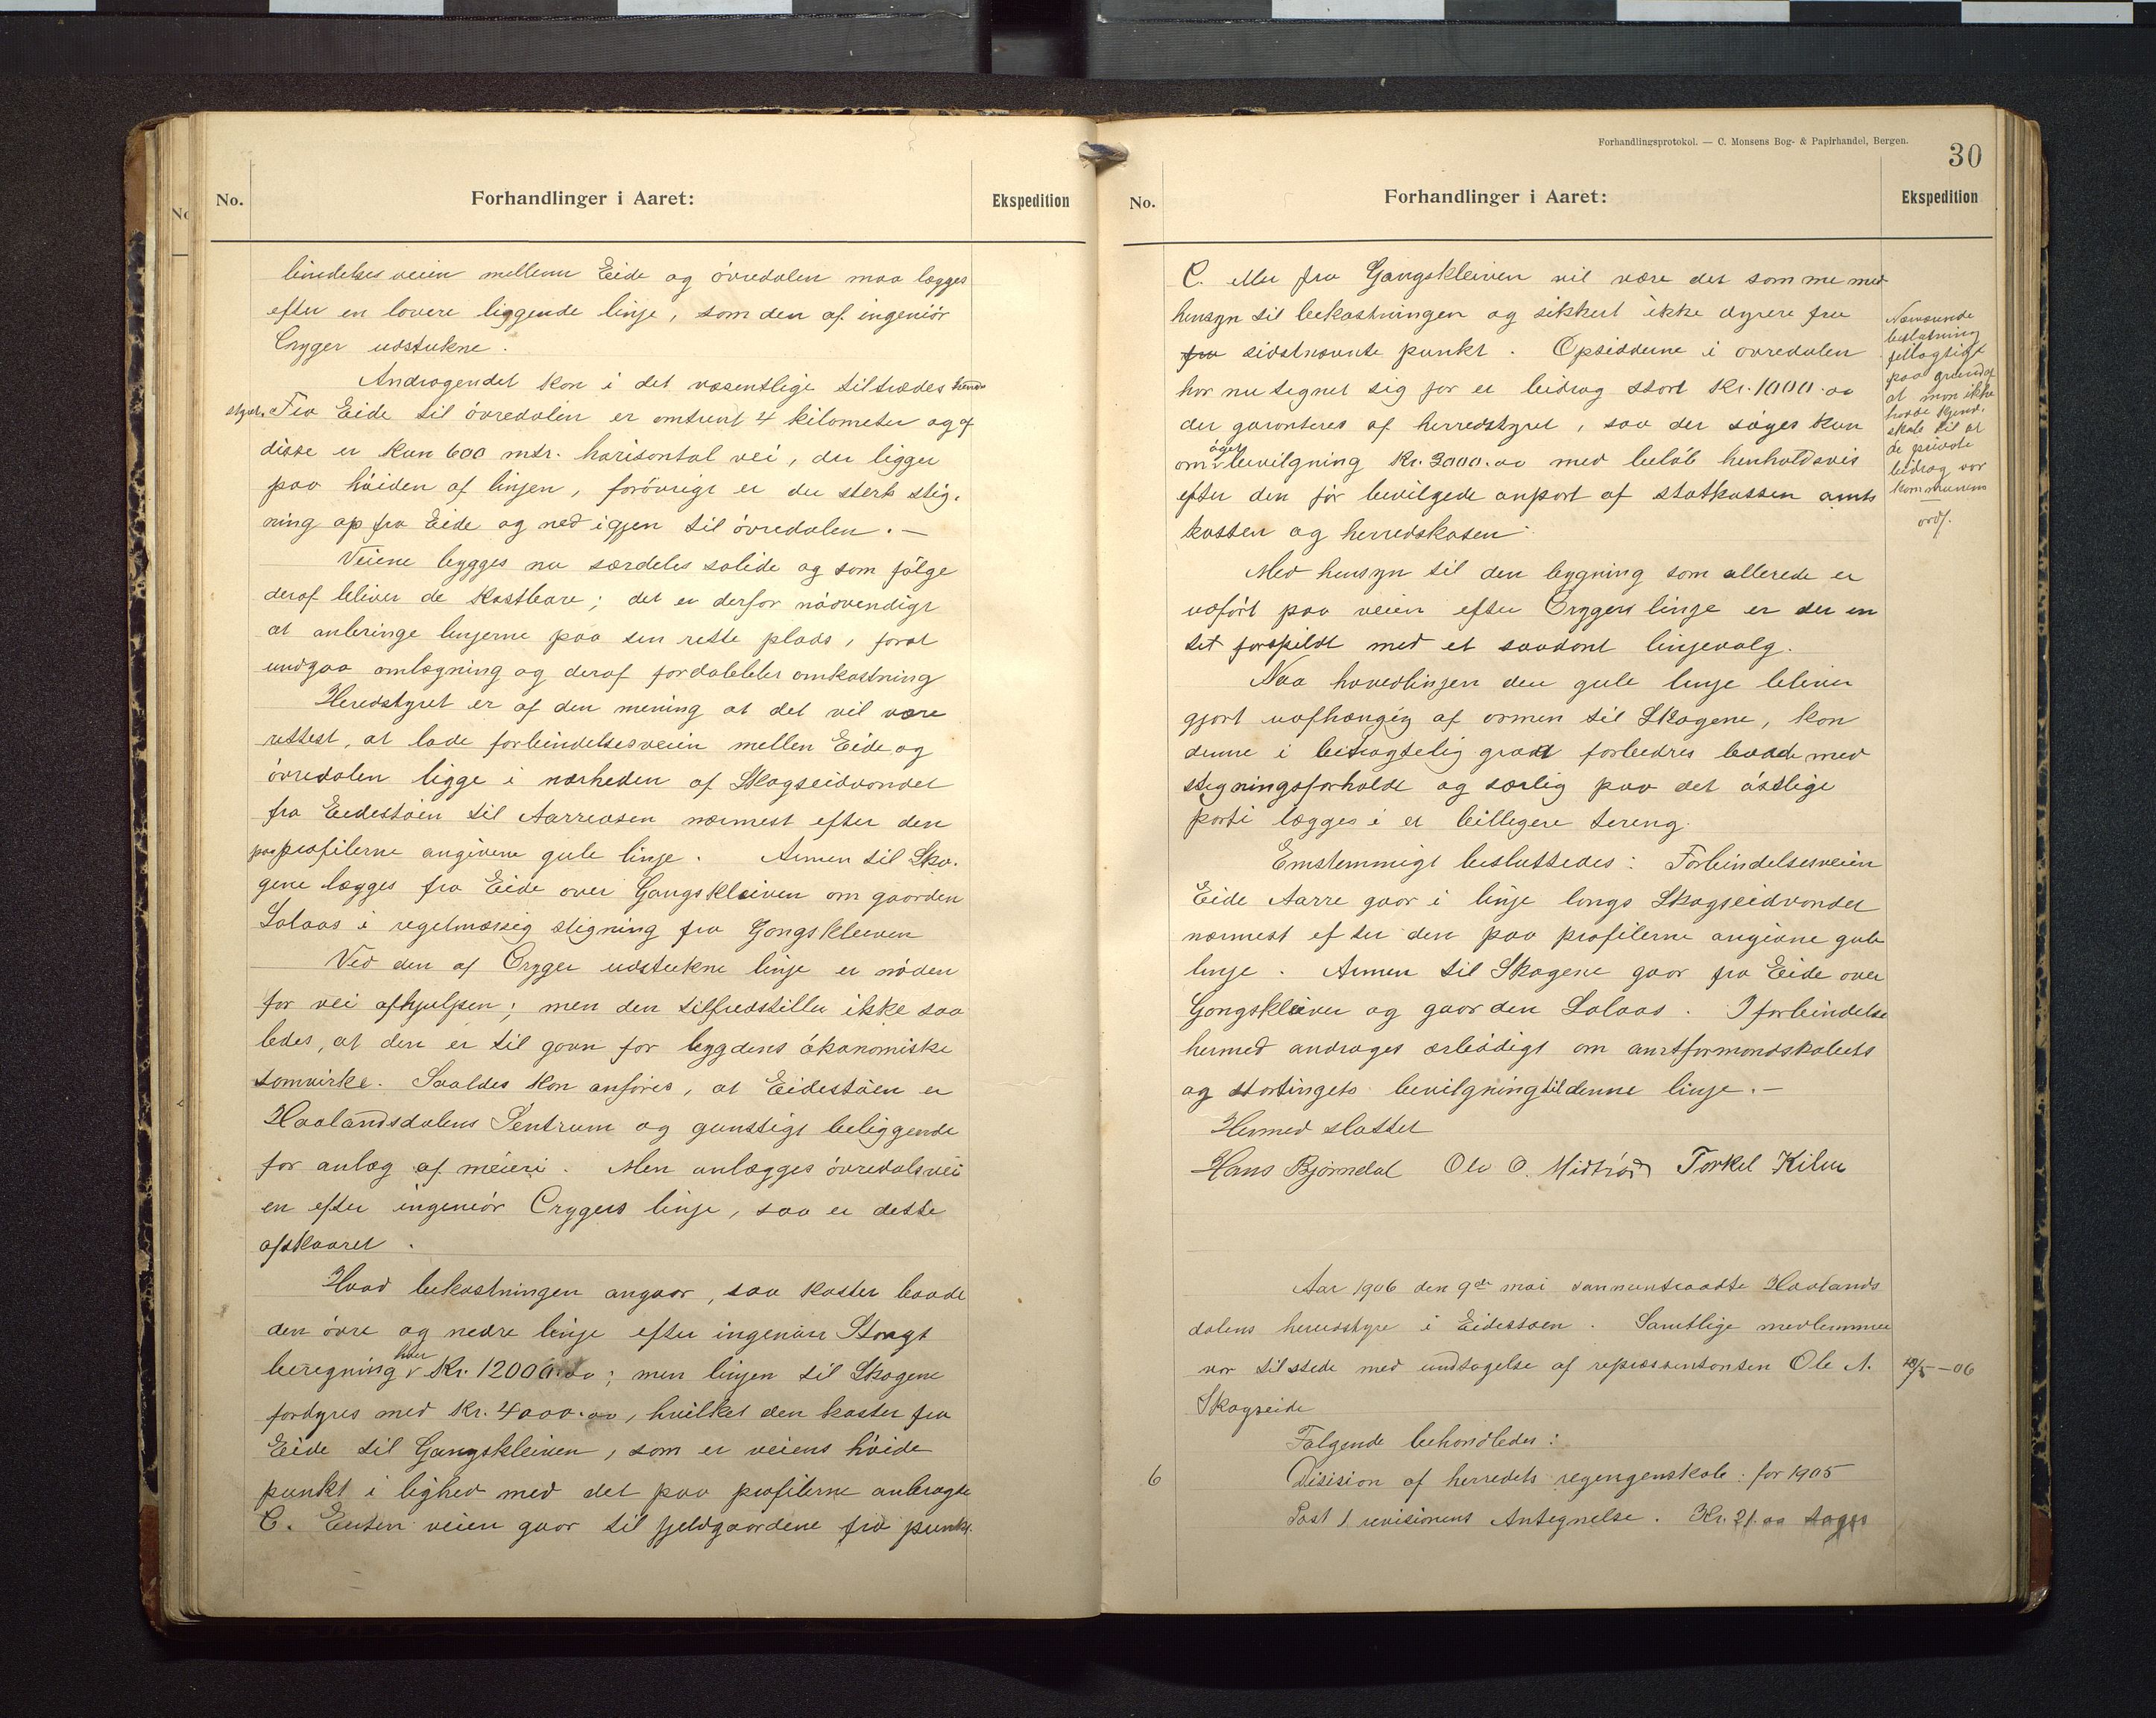 No.
Forhandlinger i Aaret:
Ekspedition
bindelsesveien mellem Eide og övredalen maa lægges
efter en lavere liggende linje, som den af ingeniör
Cryger udstukne.
Andragendet kan i det væsentlige tiltrædes herreds
styret. Fra Eide til övredalen er omtrent 4 kilometer og af
disse er kun 600 mtr. harisontal vei, der ligger
paa höiden af linjen, forövrigt er der sterk stig-
ning op fra Eide og ned igjen til övredalen. —
Veiene bygges nu særdeles solide og som fölge
deraf bliver de kostbare; det er derfor nödvendigt
at anbringe linjerne paa sin rette plads, forat
undgaa omlægning og deraf fordobblet omkostning
Heredstyret er af den mening at det vil være
rettest, at lade forbindelsesveien mellen Eide og
övredalen ligge i nærheden af Skogseidvandet
fra Eidestöen til Aarreosen nærmest efter den
paa profilerne angivene gule linje. Armen til Sko-
gene lægges fra Eide over Gangskleiven om gaarden
Lolaas i regelmæssig stigning fra Gongskleiven
Ved den af Cryger udstukne linje er nöden
for vei afhjulpen; men den tilfredstiller ikke saa
ledes, at den er til gavn for bygdens ökonomiske
samvirke. Saaldes kan anföres, at Eidestöen er
Haalandsdalens Sentrum og gunstigt beliggende
for anlæg af meieri. Men anlægges övredalsvei
en efter ingeniör Crygers linje, saa er dette
afskaaret.
Hvad bekostningen angaar, saa koster baade
den övre og nedre linje efter ingeniör Strangt
beregning hver Kr. 12000.00; men linjen til Skogene
fordyres med Kr. 4000.00, hvilket den koster fra
Eide til Gangskleiven, som er veiens höide
punkt i lighed med det paa profilerne anbragte
C. Enten veien gaar til fjeldgaardene fra punkt
Forhandlingsprotokol. — C. Monsens Bog- & Papirhandel, Bergen.
30
No.
Forhandlinger i Aaret:
Ekspedition
C. eller fra Gangskleiven vil være det somme med
hensyn til bekostningen og sikkert ikke dyrere fra
fra sidstnævnte punkt. Opsidderne i övredalen
har nu tegnet sig for et bidrag stort Kr. 1000.00
der garanteres af herredstyret, saa der söges kun
om bevilgning Kr. 3000.00 med belöb henholdsvis
efter den för bevilgede anport af statkassen amts
kassen og herredskasen
Nævnende
beslutning
feilagtige
paa grund af
at man ikke
havde kjend-
skab til at
de private
bidrag var
kommunens
ordf.
Med hensyn til den bygning som allerede er
udfört paa veien efter Crygers linje er der in
tet forspildt med et saadant linjevalg.
Naa hovedlinjen den gule linje bliver
gjort uafhængig af armen til Skogene, kan
denne i betragtelig grad forbedres baade med
stigningsforholdt og særlig paa det östlige
parti lægges i et billigere tereng.
Enstemmigt besluttedes: Forbindelsesveien
Eide Aarre gaar i linje langs Skogseidvandet
nærmest efter den paa profilerne angivne gule
linje. Armen til Skogene gaar fra Eide over
Gongskleiven og gaarden Lolaas. I forbindelse
hermed andrages ærbödigt om amtformandskabets
og stortingets bevilgning til denne linje. —
Hermed sluttet
Hans Björndal Ole O. Midtröd Torkel Kilen
Aar 1906 den 9de mai sammentraadte Haalands
dalens herredstyre i Eidestöen. Samtlige medlemmer
var tilstede med undtagelse af repræsentanten Ole N.
Skogseide
10/5 – 06
Fölgende behandledes:
6
Disision af herredets regengenskab: for 1905
Post 1 revisionens Antegnelse. Kr. 21.00 tages